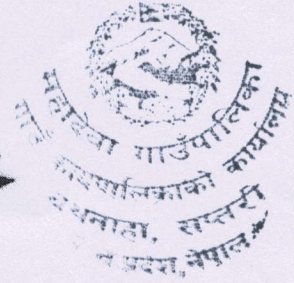 महादेवा गाउँपालिका
गाउँपालिकाको कार्यालय
सप्तरी
प्रदेश, नेपाल